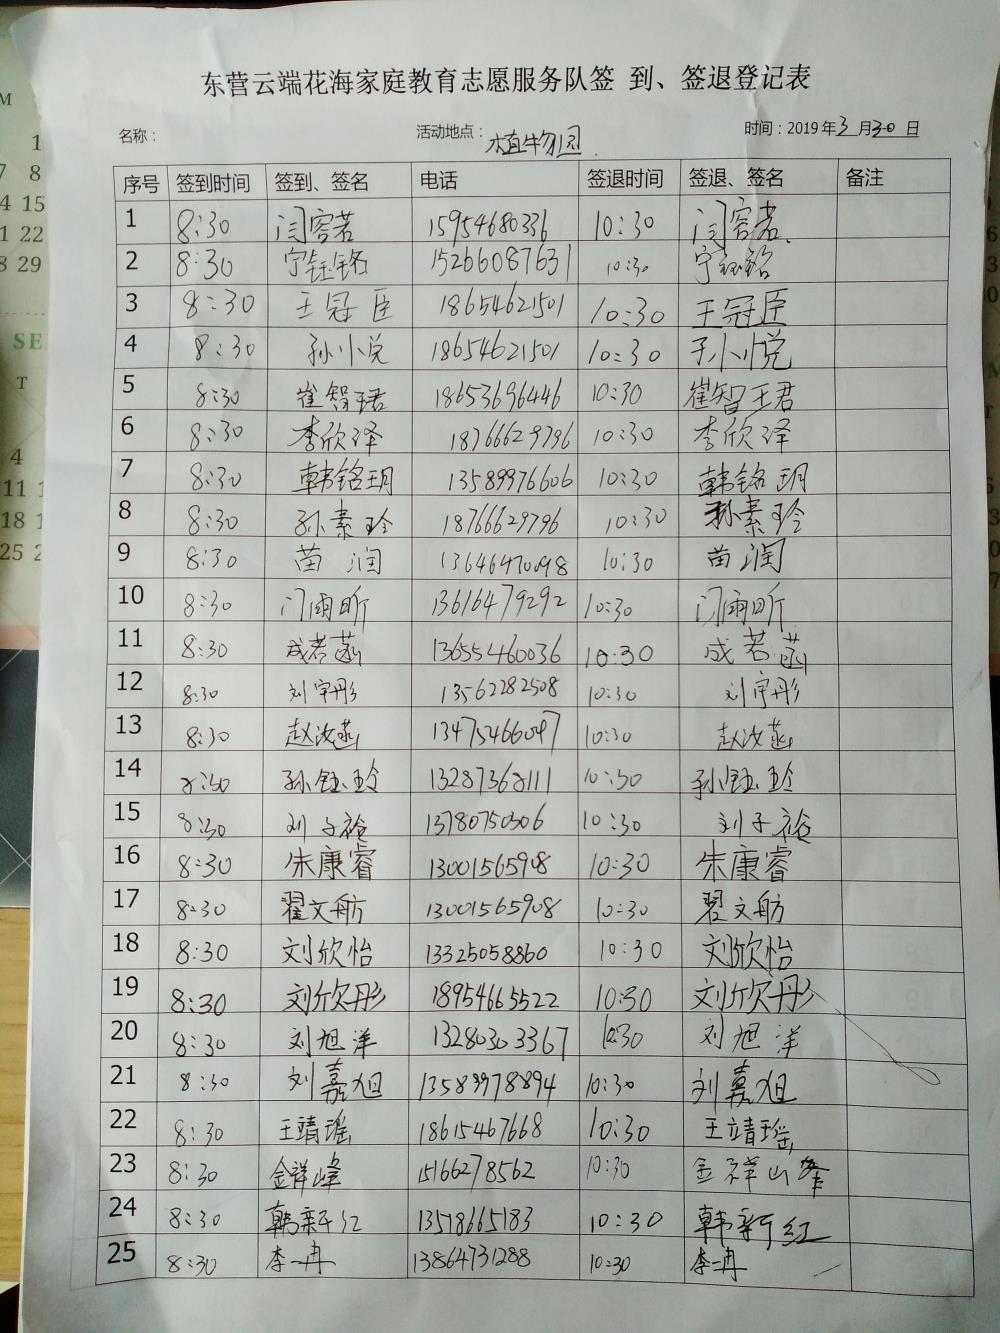 东营云端花海家庭教育志愿服务队签 到、签退登记表
名称： 活动地点：植物园 时间：2019年3月30日
序号 签到时间 签到、签名 电话 签退时间 签退、签名 备注
1 8:30 闫容若 15954680336 10:30 闫容若
2 8:30 宁钰铭 15266087631 10:30 宁钰铭
3 8:30 王冠臣 18654621501 10:30 王冠臣
4 8:30 孙小悦 18654621501 10:30 孙小悦
5 8:30 崔智珺 18653696446 10:30 崔智珺
6 8:30 李欣泽 18766629796 10:30 李欣泽
7 8:30 韩铭玥 13589976606 10:30 韩铭玥
8 8:30 孙素玲 18766629796 10:30 孙素玲
9 8:30 苗润 13646470098 10:30 苗润
10 8:30 门雨昕 13616479292 10:30 门雨昕
11 8:30 成若菡 13655460036 10:30 成若菡
12 8:30 刘宇彤 13562282508 10:30 刘宇彤
13 8:30 赵汝菡 13475466097 10:30 赵汝菡
14 8:30 孙钰玲 13287368111 10:30 孙钰玲
15 8:30 刘子裕 13780750306 10:30 刘子裕
16 8:30 朱康睿 13001565908 10:30 朱康睿
17 8:30 翟文舫 13001565908 10:30 翟文舫
18 8:30 刘欣怡 13325058860 10:30 刘欣怡
19 8:30 刘欣彤 18954665522 10:30 刘欣彤
20 8:30 刘旭洋 13280303367 10:30 刘旭洋
21 8:30 刘嘉旭 13589978894 10:30 刘嘉旭
22 8:30 王靖瑶 18615467668 10:30 王靖瑶
23 8:30 金祥峰 15166278562 10:30 金祥峰
24 8:30 韩新红 13518665183 10:30 韩新红
25 8:30 李一冉 13864731288 10:30 李一冉